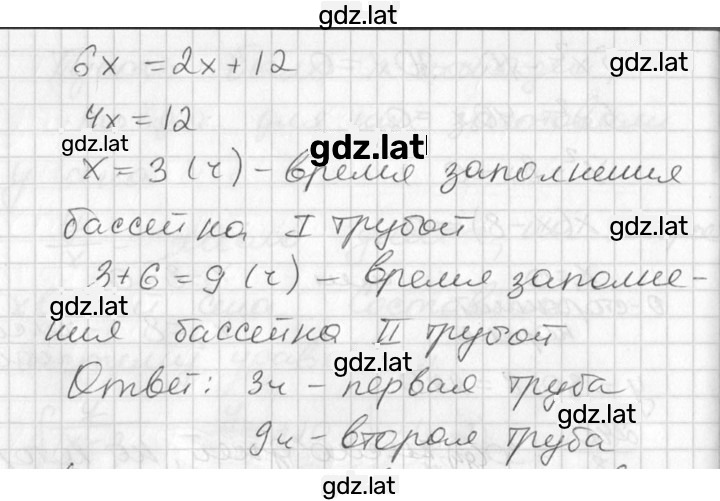 gdz.lat
6x = 2x + 12
gdz.lat
4x = 12
gdz.lat
gdz.lat
x = 3 (ч) - время заполнения
бассейна I трубой
gdz.lat
3 + 6 = 9 (ч) - время заполне-
gdz.lat
ния бассейна II трубой
gdz.lat
Ответ: 3ч - первая труба
gdz.lat
9ч - вторая труба
gdz.lat